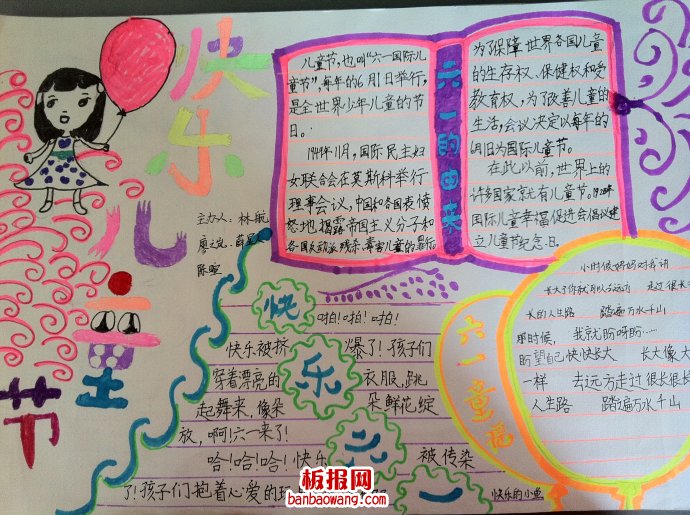 快乐儿童节
主办人：林航
陈暄
六一的由来
儿童节，也叫“六一国际儿
童节”，每年的6月1日举行，
是全世界少年儿童的节
日。
1949年11月，国际民主妇
女联合会在莫斯科举行
理事会议，中国和各国表愤
怒地揭露帝国主义分子和
各国反动派残杀、毒害儿童的暴行。
为了保障世界各国儿童
的生存权、保健权和受
教育权，为了改善儿童的
生活，会议决定以每年的
6月1日为国际儿童节。
在此以前，世界上的
许多国家就有儿童节。
国际儿童幸福促进会倡议建
立儿童节纪念日。
快乐六一
啪！啪！啪！
快乐被挤爆了！孩子们
穿着漂亮的衣服，跳
起舞来，像朵朵鲜花绽
放，啊！六一来了！
哈！哈！哈！快乐被传染
了！孩子们抱着心爱的玩
快乐的小鱼
六一童谣
小时候妈妈对我讲
长大了你就可以去远方 走过很长
长的人生路 踏遍万水千山
那时候，我就盼呀盼……
盼望自己快快长大 长大像大
一样 去远方走过很长很长
人生路 踏遍万水千山
板报网
banbaowang.com